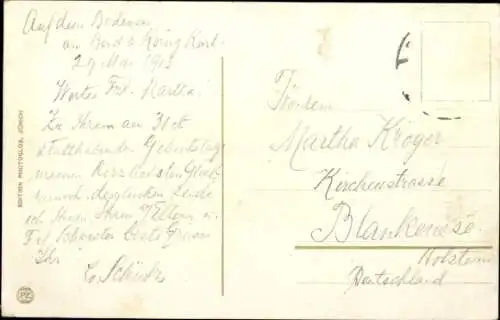 Auf dem Bodensee
an Bord d. König Karl.
29 Mai 1913
Wertes Frl. Martha!
Zu Ihrem am 30 ct
stattfindenden Geburtstag
meinen herzlichsten Glück
wunsch, desgleichen sende
ich Ihnen Ihren Eltern u.
Frl. Schwester beste Grüsse
Ihr
EDITION PHOTOGLOB, ZÜRICH
PZ
Martha Kröger
Kirchenstrasse
Blankenese
Holstein
Deutschland